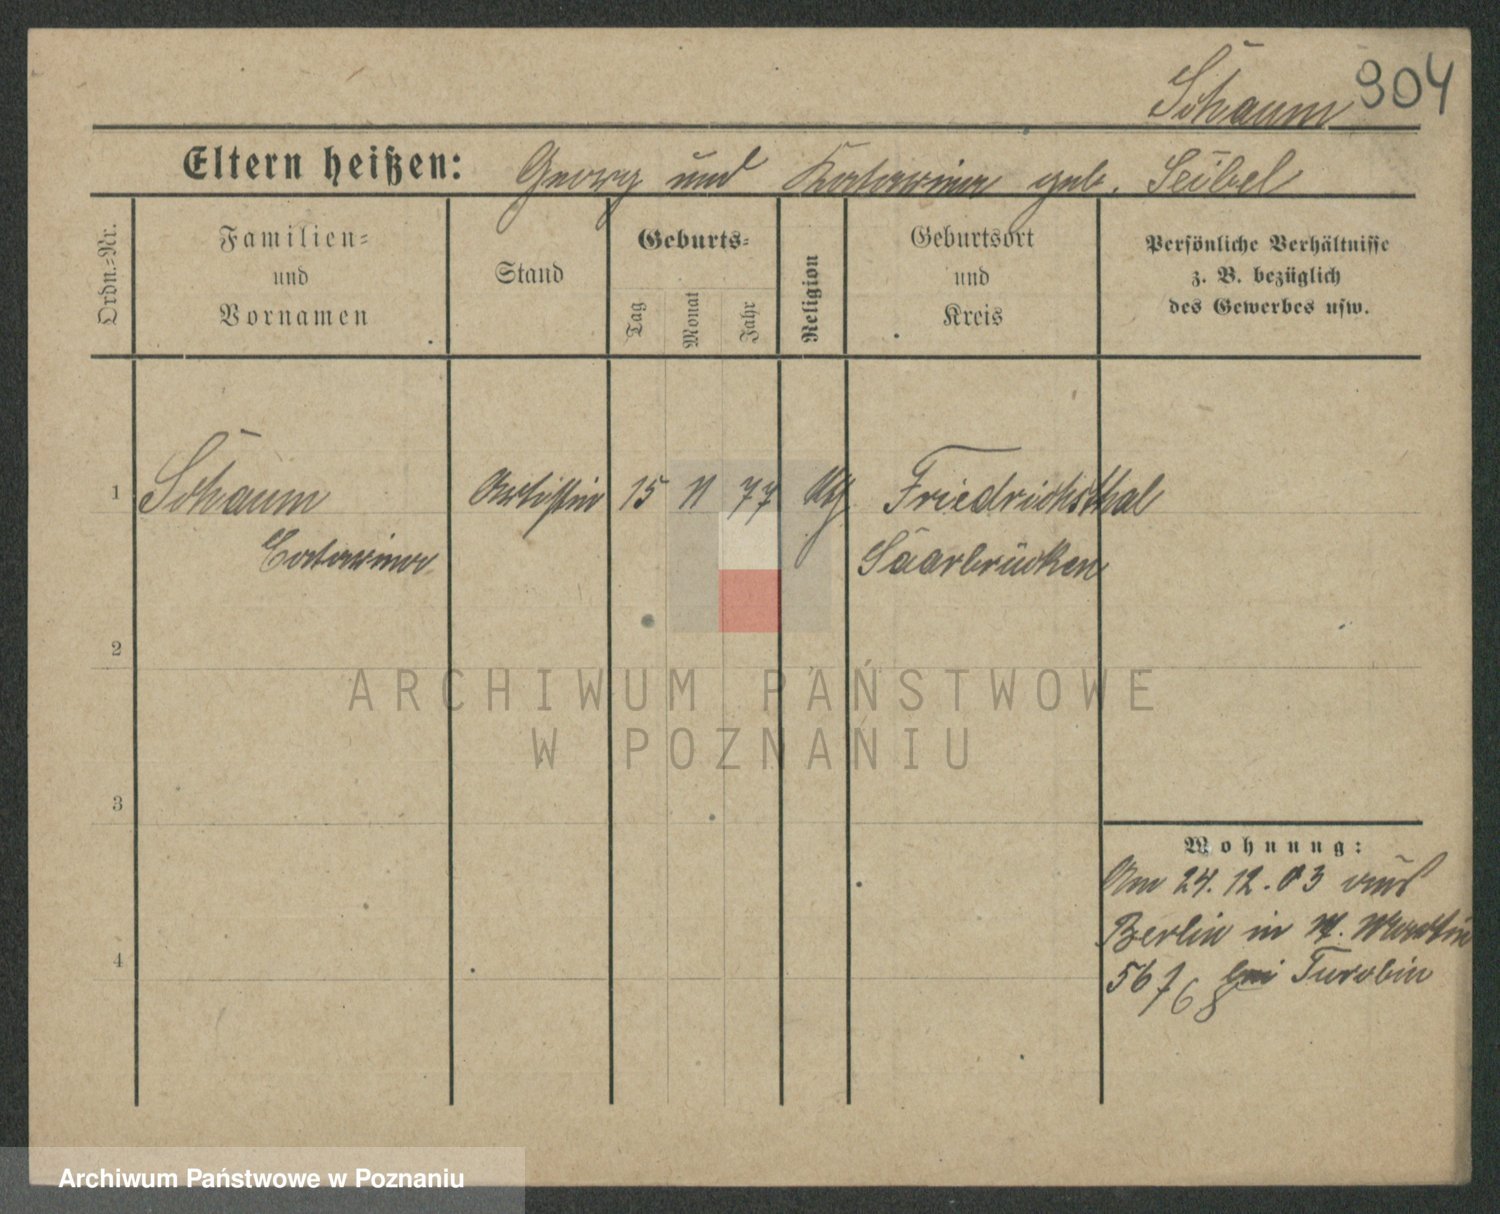 Schaum 904
Eltern heißen: Georg und Katarina geb. Seibel
Ordn.-Nr.
Familien-
und
Vornamen
Stand
Geburts-
Tag
Monat
Jahr
Religion
Geburtsort
und
Kreis
Persönliche Verhältnisse
z. B. bezüglich
des Gewerbes usw.
1 Schaum Artistin 15 11 77 Friedrichsthal
Catarina Saarbrücken
2
3
4
ARCHIWUM PAŃSTWOWE
W POZNANIU
Wohnung:
Am 24.12.03 aus
Berlin in St. Martin
56 bei Turobin
Archiwum Państwowe w Poznaniu